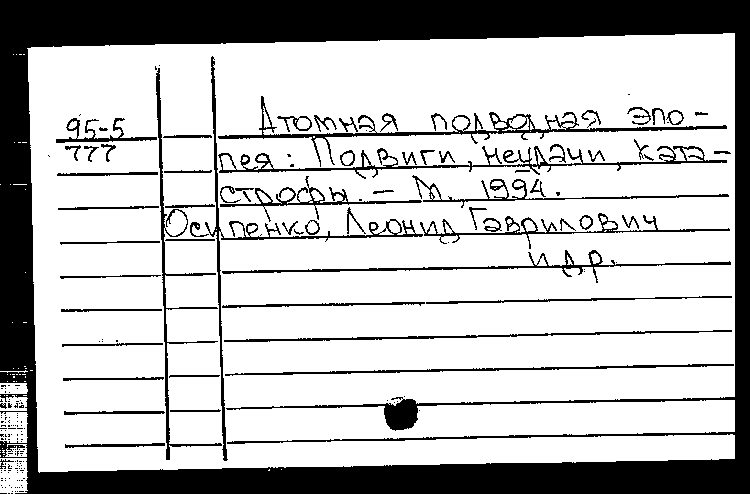 95-5 Атомная подводная эпо-
777 пея: Подвиги, неудачи, ката-
строфы. - М., 1994.
Осипенко, Леонид Гаврилович
и др.